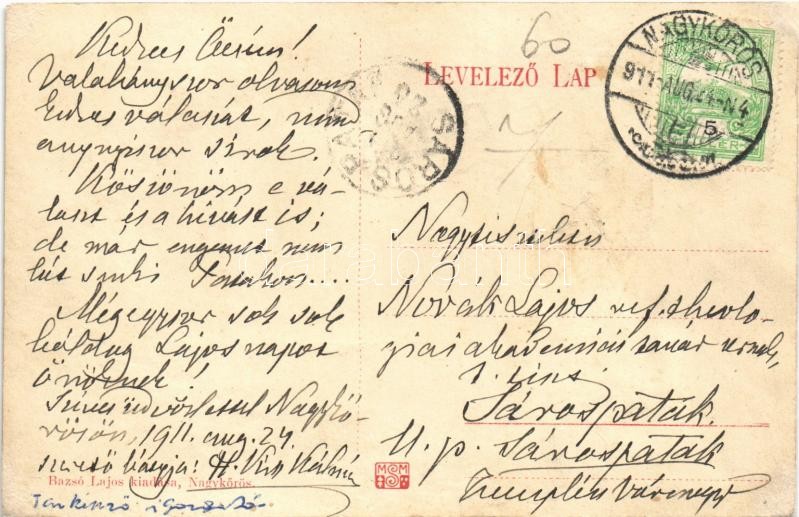 Kedves Öcsém!
Valahányszor olvasom
kedves válaszát, mind
annyiszor sírok.
Köszönöm e vá-
laszt és a hívást is;
de már engemet nem
lát senki Patakon....
Mégegyszer sok sok
boldog Lajos napot
önöknek!
Szíves üdvözlettel Nagykő-
rösön, 1911. aug. 24
szerető bátyja: H. Kiss Kálmán
Bazsó Lajos kiadása, Nagykőrös.
igazgató
60
LEVELEZŐ LAP
NAGYKŐRÖS
911 AUG. 24 N4
SÁROSPATAK
Nagytiszteletű
Novák Lajos ref. theolo-
giai akadémiai tanár úrnak,
Sárospatak
U. p. Sárospatak
Zemplén vármegye